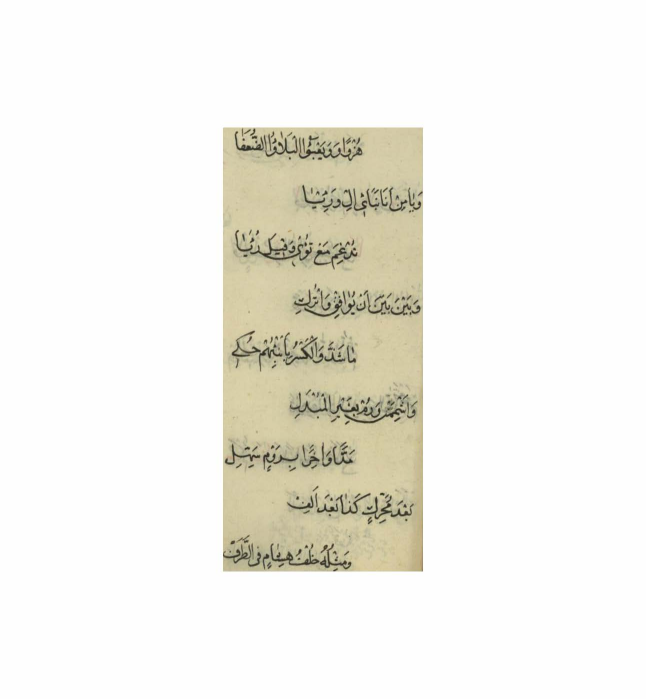 هُزْوًا وَيَعْبَؤُا الْبَلَاؤُا الضُّعَفَا
وَيَا مِنْ آنَا نَبَائِ الْ وَرِيَّا
تُدْغَمُ مَعْ تُؤْوِي وَقِيلَ رُؤْيَا
وَبَيْنَ بَيْنَ إِنْ يُوَافِقْ وَاتْرُكِ
مَا شَذَّ وَالْكَسْرُ بِأَنْبِئْهُمْ حُكِي
وَأَشْمِمَنْ وَرُمْ بِغَيْرِ الْمُبْدَلِ
مَدًّا وَآخِرًا بِرَوْمٍ سَهِّلِ
بَعْدَ مُحَرَّكٍ كَذَا بَعْدَ أَلِفْ
وَمِثْلُهُ خُلْفُ هِشَامٍ فِي الطَّرَفْ